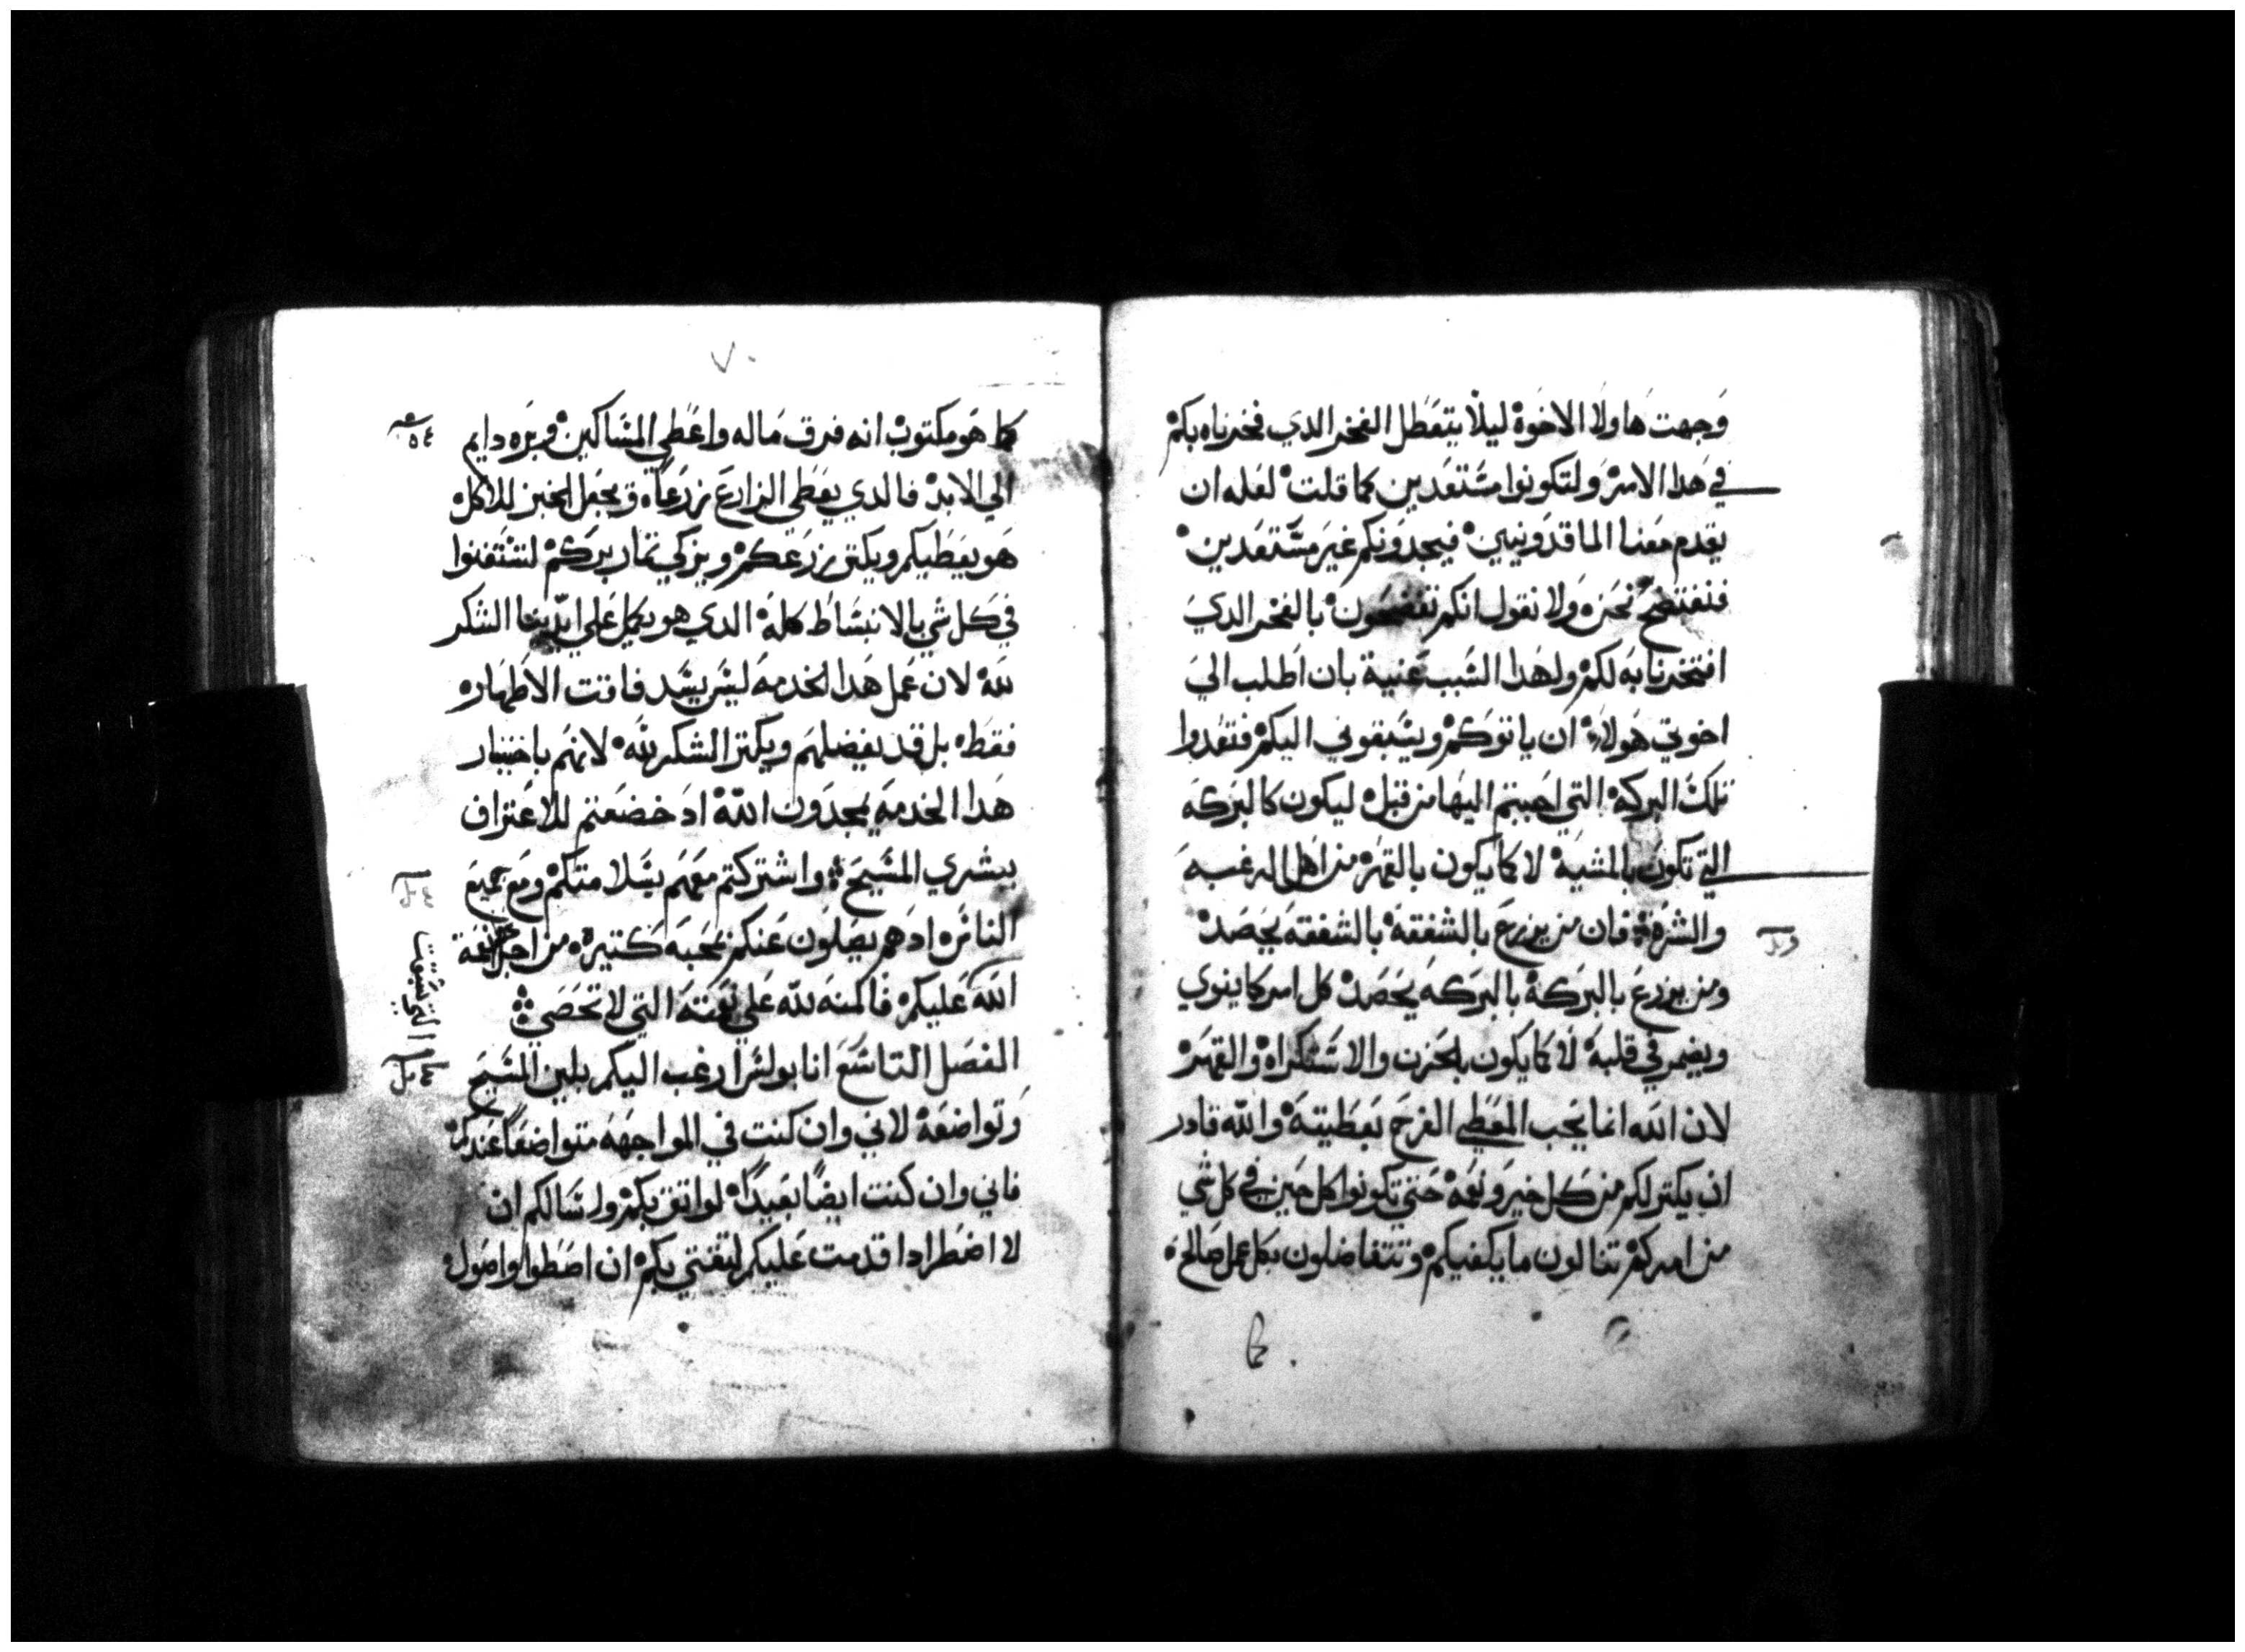 وجهت هاولا الاخوة ليلا يتعطل الفخر الدي فخرناه بكم
في هدا الامر ولتكونوا مستعدين كما قلت لعله ان
يقدم معنا الماقدونيين فيجدونكم غير مستعدين
فنفتضح نحن ولا نقول انكم تفتضحون بالفخر الدي
افتخرنا به لكم ولهدا السبب عنيت بان اطلب الي
اخوتي هولاء ان ياتوكم ويسبقوني اليكم فتعدوا
تلك البركة التي اجبتم اليها من قبل ليكون كالبركه
التي تكون بالمشية لا كما يكون بالقهر من اهل الرغبه
والشره فان من يزرع بالشفقة بالشفقه يحصد
ومن يزرع بالبركة بالبركه يحصد كل امر كما ينوي
ويضمر في قلبه لا كما يكون بالحزن والاستكراه والقهر
لان الله انما يحب المعطي الفرح بعطيته والله قادر
ان يكتر لكم من كل خير ونعمة حتي تكونوا كل حين في كل شي
من امركم تنالون ما يكفيكم وتتفاضلون بكل عمل صالح
كما هو مكتوب انه فرق ماله واعطي المساكين وبره دايم
الي الابد فالدي يعطي الزارع زرعاً ويجعل الخبز للاكل
هو يعطيكم ويكتر زرعكم ويزكي تمار بركم لتستغنوا
في كل شي بالانبساط كله الدي هو يكمل علي ايدينا الشكر
لله لان عمل هدا الخدمه ليس يسد فاقت الاطهار
فقط بل قد يفضلهم ويكتر الشكر لله لانهم باختيار
هدا الخدمه يمجدون الله اد خضعتم للاعتراف
ببشري المسيح واشتركتم معهم بسلامتكم ومع جميع
الناس اد هم يصلون عنكم بمحبه كتيرة من اجل نعمة
الله عليكم فالمنه لله علي نعمته التي لا تحصي
الفصل التاسع انا بولس ارغب اليكم بلين المسيح
وتواضعه لاني وان كنت في المواجهه متواضعاً عندكم
فاني وان كنت ايضاً بعيداً لواتق بكم واسالكم ان
لا اضطر ادا قدمت عليكم لتقتي بكم ان اسطوا واصول